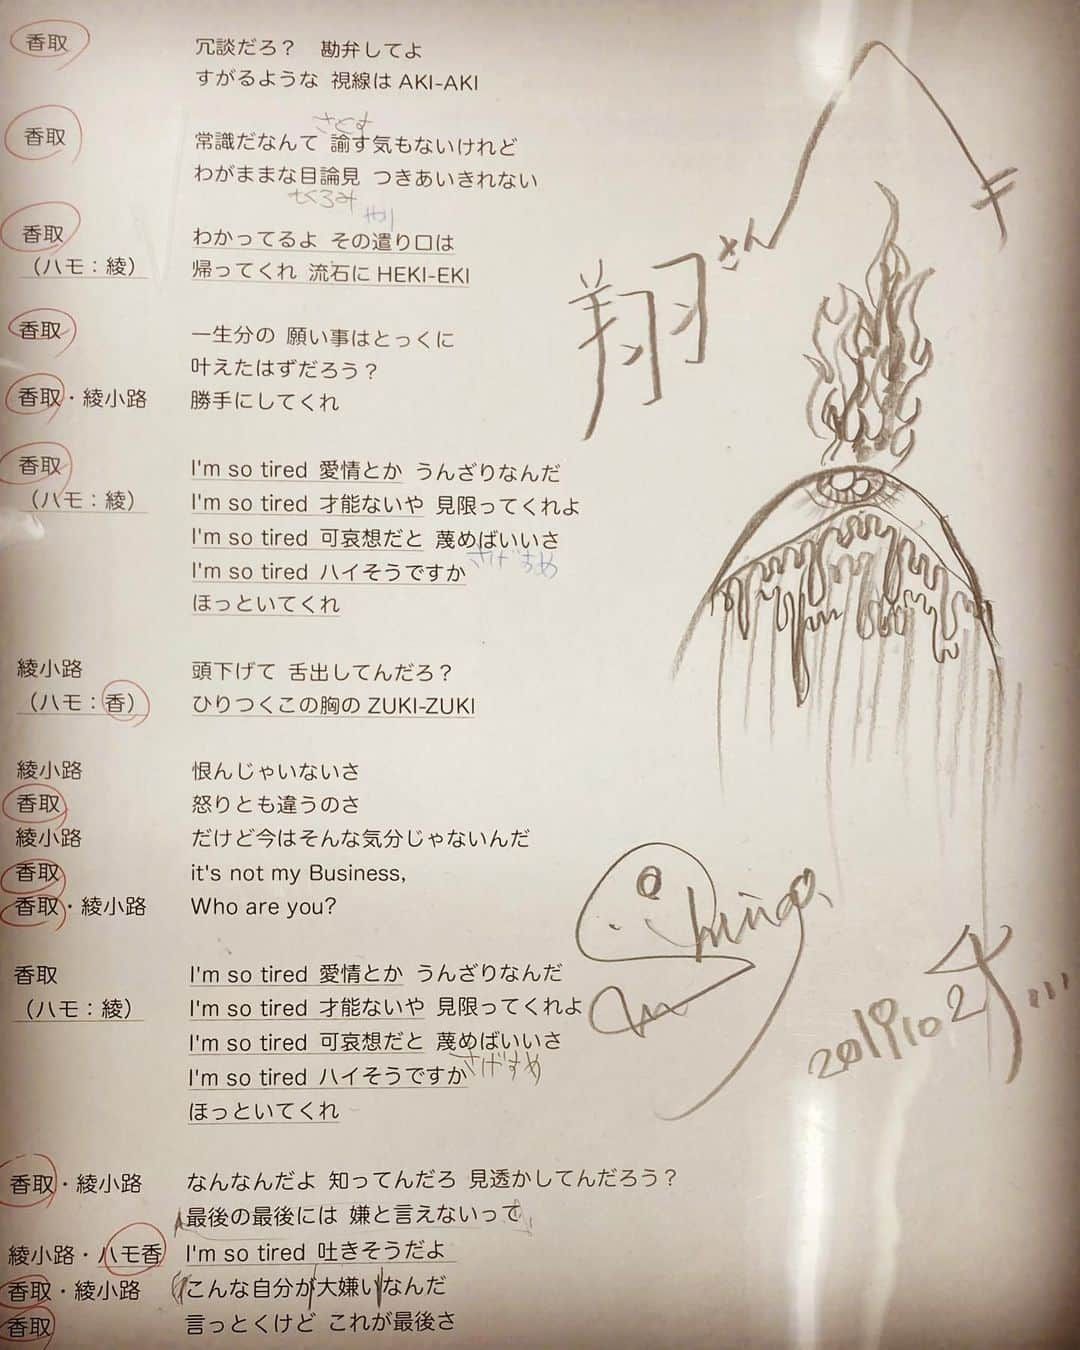 香取 冗談だろ？ 勘弁してよ
すがるような 視線は AKI-AKI
さとす
香取 常識だなんて 諭す気もないけれど
わがままな目論見 つきあいきれない
もくろみ
やり
香取 わかってるよ その遣り口は
（ハモ：綾） 帰ってくれ 流石に HEKI-EKI
香取 一生分の 願い事はとっくに
叶えたはずだろう？
香取・綾小路 勝手にしてくれ
香取 I'm so tired 愛情とか うんざりなんだ
（ハモ：綾） I'm so tired 才能ないや 見限ってくれよ
I'm so tired 可哀想だと 蔑めばいいさ
さげすめ
I'm so tired ハイそうですか
ほっといてくれ
綾小路 頭下げて 舌出してんだろ？
（ハモ：香） ひりつくこの胸の ZUKI-ZUKI
綾小路 恨んじゃいないさ
香取 怒りとも違うのさ
綾小路 だけど今はそんな気分じゃないんだ
香取 it's not my Business,
香取・綾小路 Who are you?
香取 I'm so tired 愛情とか うんざりなんだ
（ハモ：綾） I'm so tired 才能ないや 見限ってくれよ
I'm so tired 可哀想だと 蔑めばいいさ
さげすめ
I'm so tired ハイそうですか
ほっといてくれ
香取・綾小路 なんなんだよ 知ってんだろ 見透かしてんだろう？
最後の最後には 嫌と言えないって
綾小路・ハモ香 I'm so tired 吐きそうだよ
香取・綾小路 こんな自分が大嫌いなんだ
香取 言っとくけど これが最後さ
翔さん
Shingo
2019 10 2